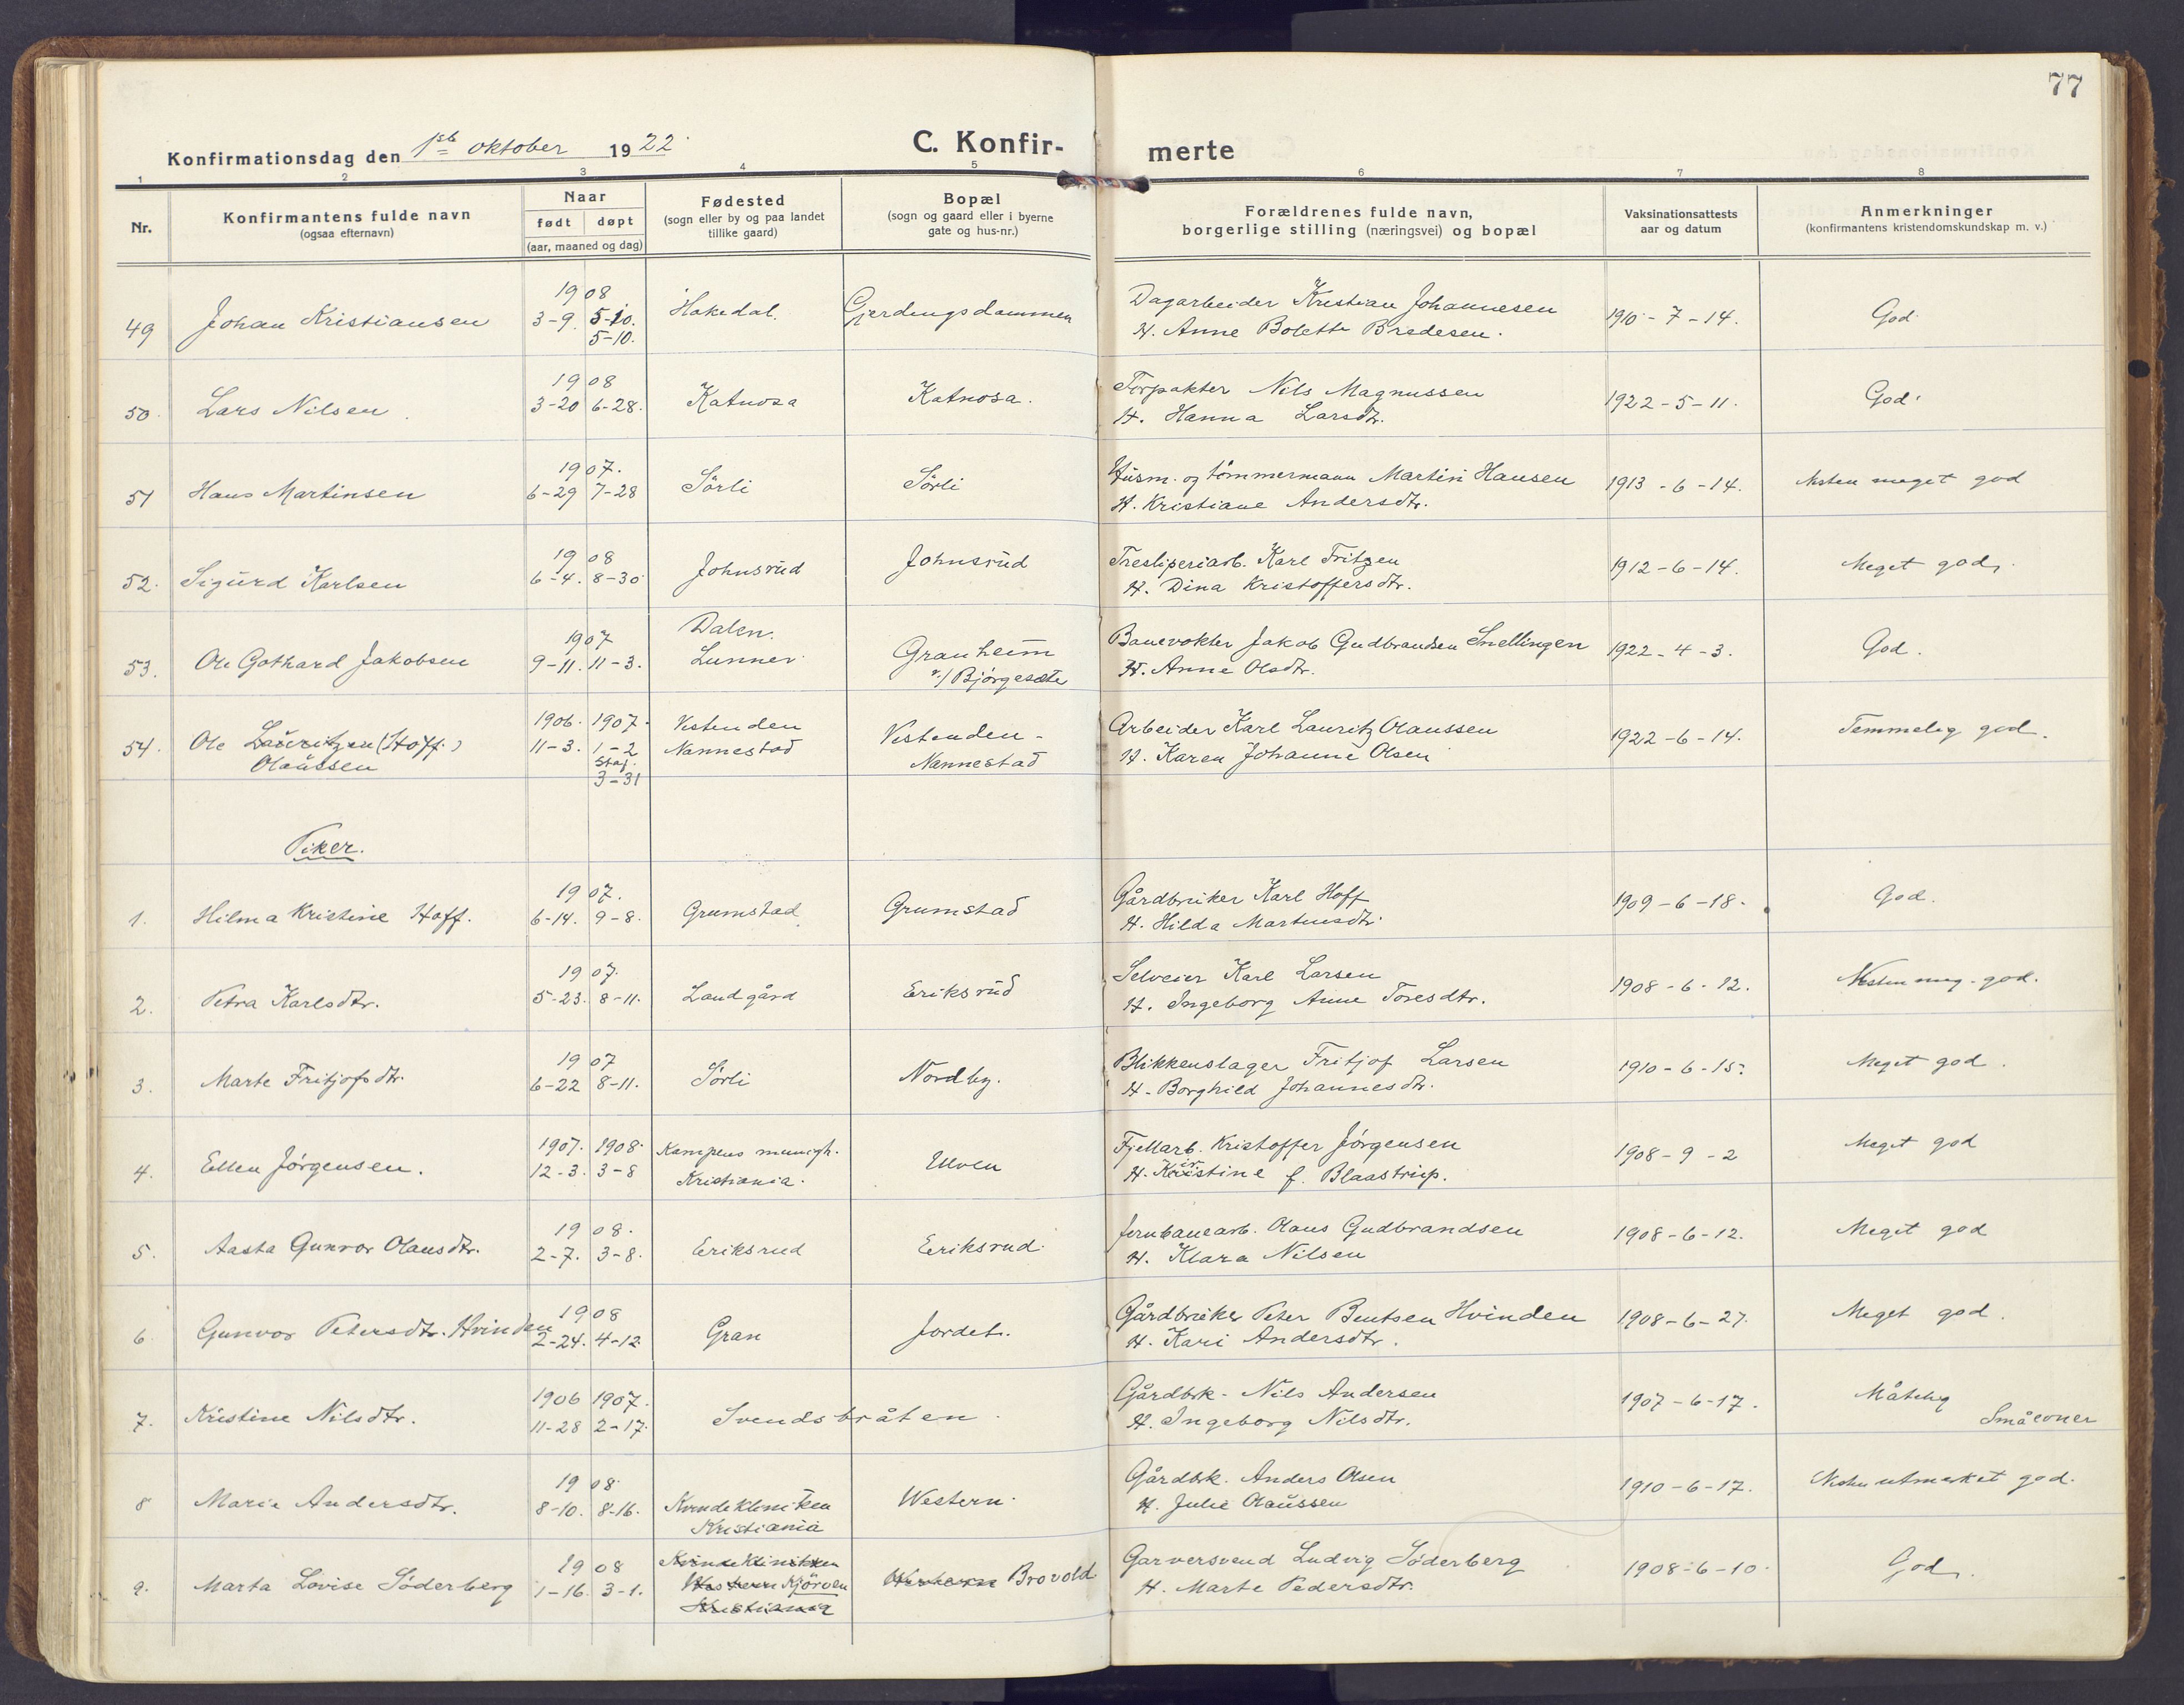 77
Konfirmationsdag den 1ste oktober 1922. C. Konfir- merte
1 2 3 4 5 6 7 8
Nr. Konfirmantens fulde navn (ogsaa efternavn) Naar født døpt (aar, maaned og dag) Fødested (sogn eller by og paa landet tillike gaard) Bopæl (sogn og gaard eller i byerne gate og hus-nr.) Forældrenes fulde navn, borgerlige stilling (næringsvei) og bopæl Vaksinationsattests aar og datum Anmerkninger (konfirmantens kristendomskundskap m. v.)
1908
49 Johan Kristiansen 3-9. 5-10. Hakedal. Gjerdingsdammen Dagarbeider Kristian Johannesen 1910-7-14. God
5-10. H. Anne Bolette Bredesen.
1908
50. Lars Nilsen 3-20 6-28. Katnosa Katnosa. Forpakter Nils Magnussen 1922-5-11. God.
H. Hanna Larsdtr.
1907.
51 Hans Martinsen 6-29 7-28 Sörli Sörli Husm. og tömmermann Martin Hansen 1913-6-14. Nesten meget god
H. Kristiane Andersdtr.
1908
52. Sigurd Karlsen 6-4. 8-30. Johnsrud Johnsrud Tresliperiarb. Karl Fritzen 1912-6-14. Meget god.
H. Dina Kristoffersdtr.
1907 Dalen.
53. Ole Gothard Jakobsen 9-11. 11-3. Lunner Granheim Banevokter Jakob Gudbrandsen Snellingen 1922-4-3. God.
v/Bjørgesæter H. Anne Olsdtr.
1906. 1907. Vestenden
54. Ole Lauritzen (Hoff.) 11-3. 1-2 Nannestad Vestenden- Arbeider Karl Lauritz Olaussen 1922-6-14. Temmelig god.
Olaussen Staf. Nannestad H. Karen Johanne Olsen
3-31
Piker.
1907.
1. Hilma Kristine Hoff. 6-14. 9-8. Grumstad Grumstad Gårdbruker Karl Hoff 1909-6-18. God.
H. Hilda Martinsdtr.
1907.
2. Petra Karlsdtr. 5-23. 8-11. Landgård Eriksrud Selveier Karl Larsen 1908-6-12. Nesten meg. god.
H. Ingeborg Anne Toresdtr.
1907
3. Marte Fritjofsdtr. 6-22 8-11. Sörli Nordby. Blikkenslager Fritjof Larsen 1910-6-15. Meget god.
H. Borghild Johannesdtr.
1907. 1908. Kampens menigh.
4. Ellen Jörgensen. 12-3. 3-8 Kristiania. Ulven Fjellarb. Kristoffer Jörgensen 1908-9-2 Meget god
H. Kristine f. Blaastrup.
1908.
5. Aasta Gunvor Olausdtr. 2-7. 3-8. Eriksrud Eriksrud. Jernbanearb. Olaus Gudbrandsen 1908-6-12. Meget god
H. Klara Nilsen
1908
6. Gunvor Petersdtr. Hvinden 2-24. 4-12. Gran Jordet. Gårdbruker Peter Bentsen Hvinden 1908-6-27. Meget god.
H. Kari Andersdtr.
1906 1907.
7. Kristine Nilsdtr. 11-28 2-17. Svendsbråten. Gårdbrk. Nils Andersen 1907-6-17. Måtelig
H. Ingeborg Nilsdtr. Småevner
1908.
8 Marie Andersdtr. 8-10. 8-16. Kvindekliniken Western. Gårdbrk. Anders Olsen 1910-6-17. Nesten utmerket god.
Kristiania H. Julie Olaussen
1908 Kvindekliniken
9. Marta Lovise Söderberg 1-16. 3-1. Western Kjörven Western Brovold Garversvend Ludvig Söderberg 1908-6-10. God.
Kristiania H. Marte Pedersdtr.